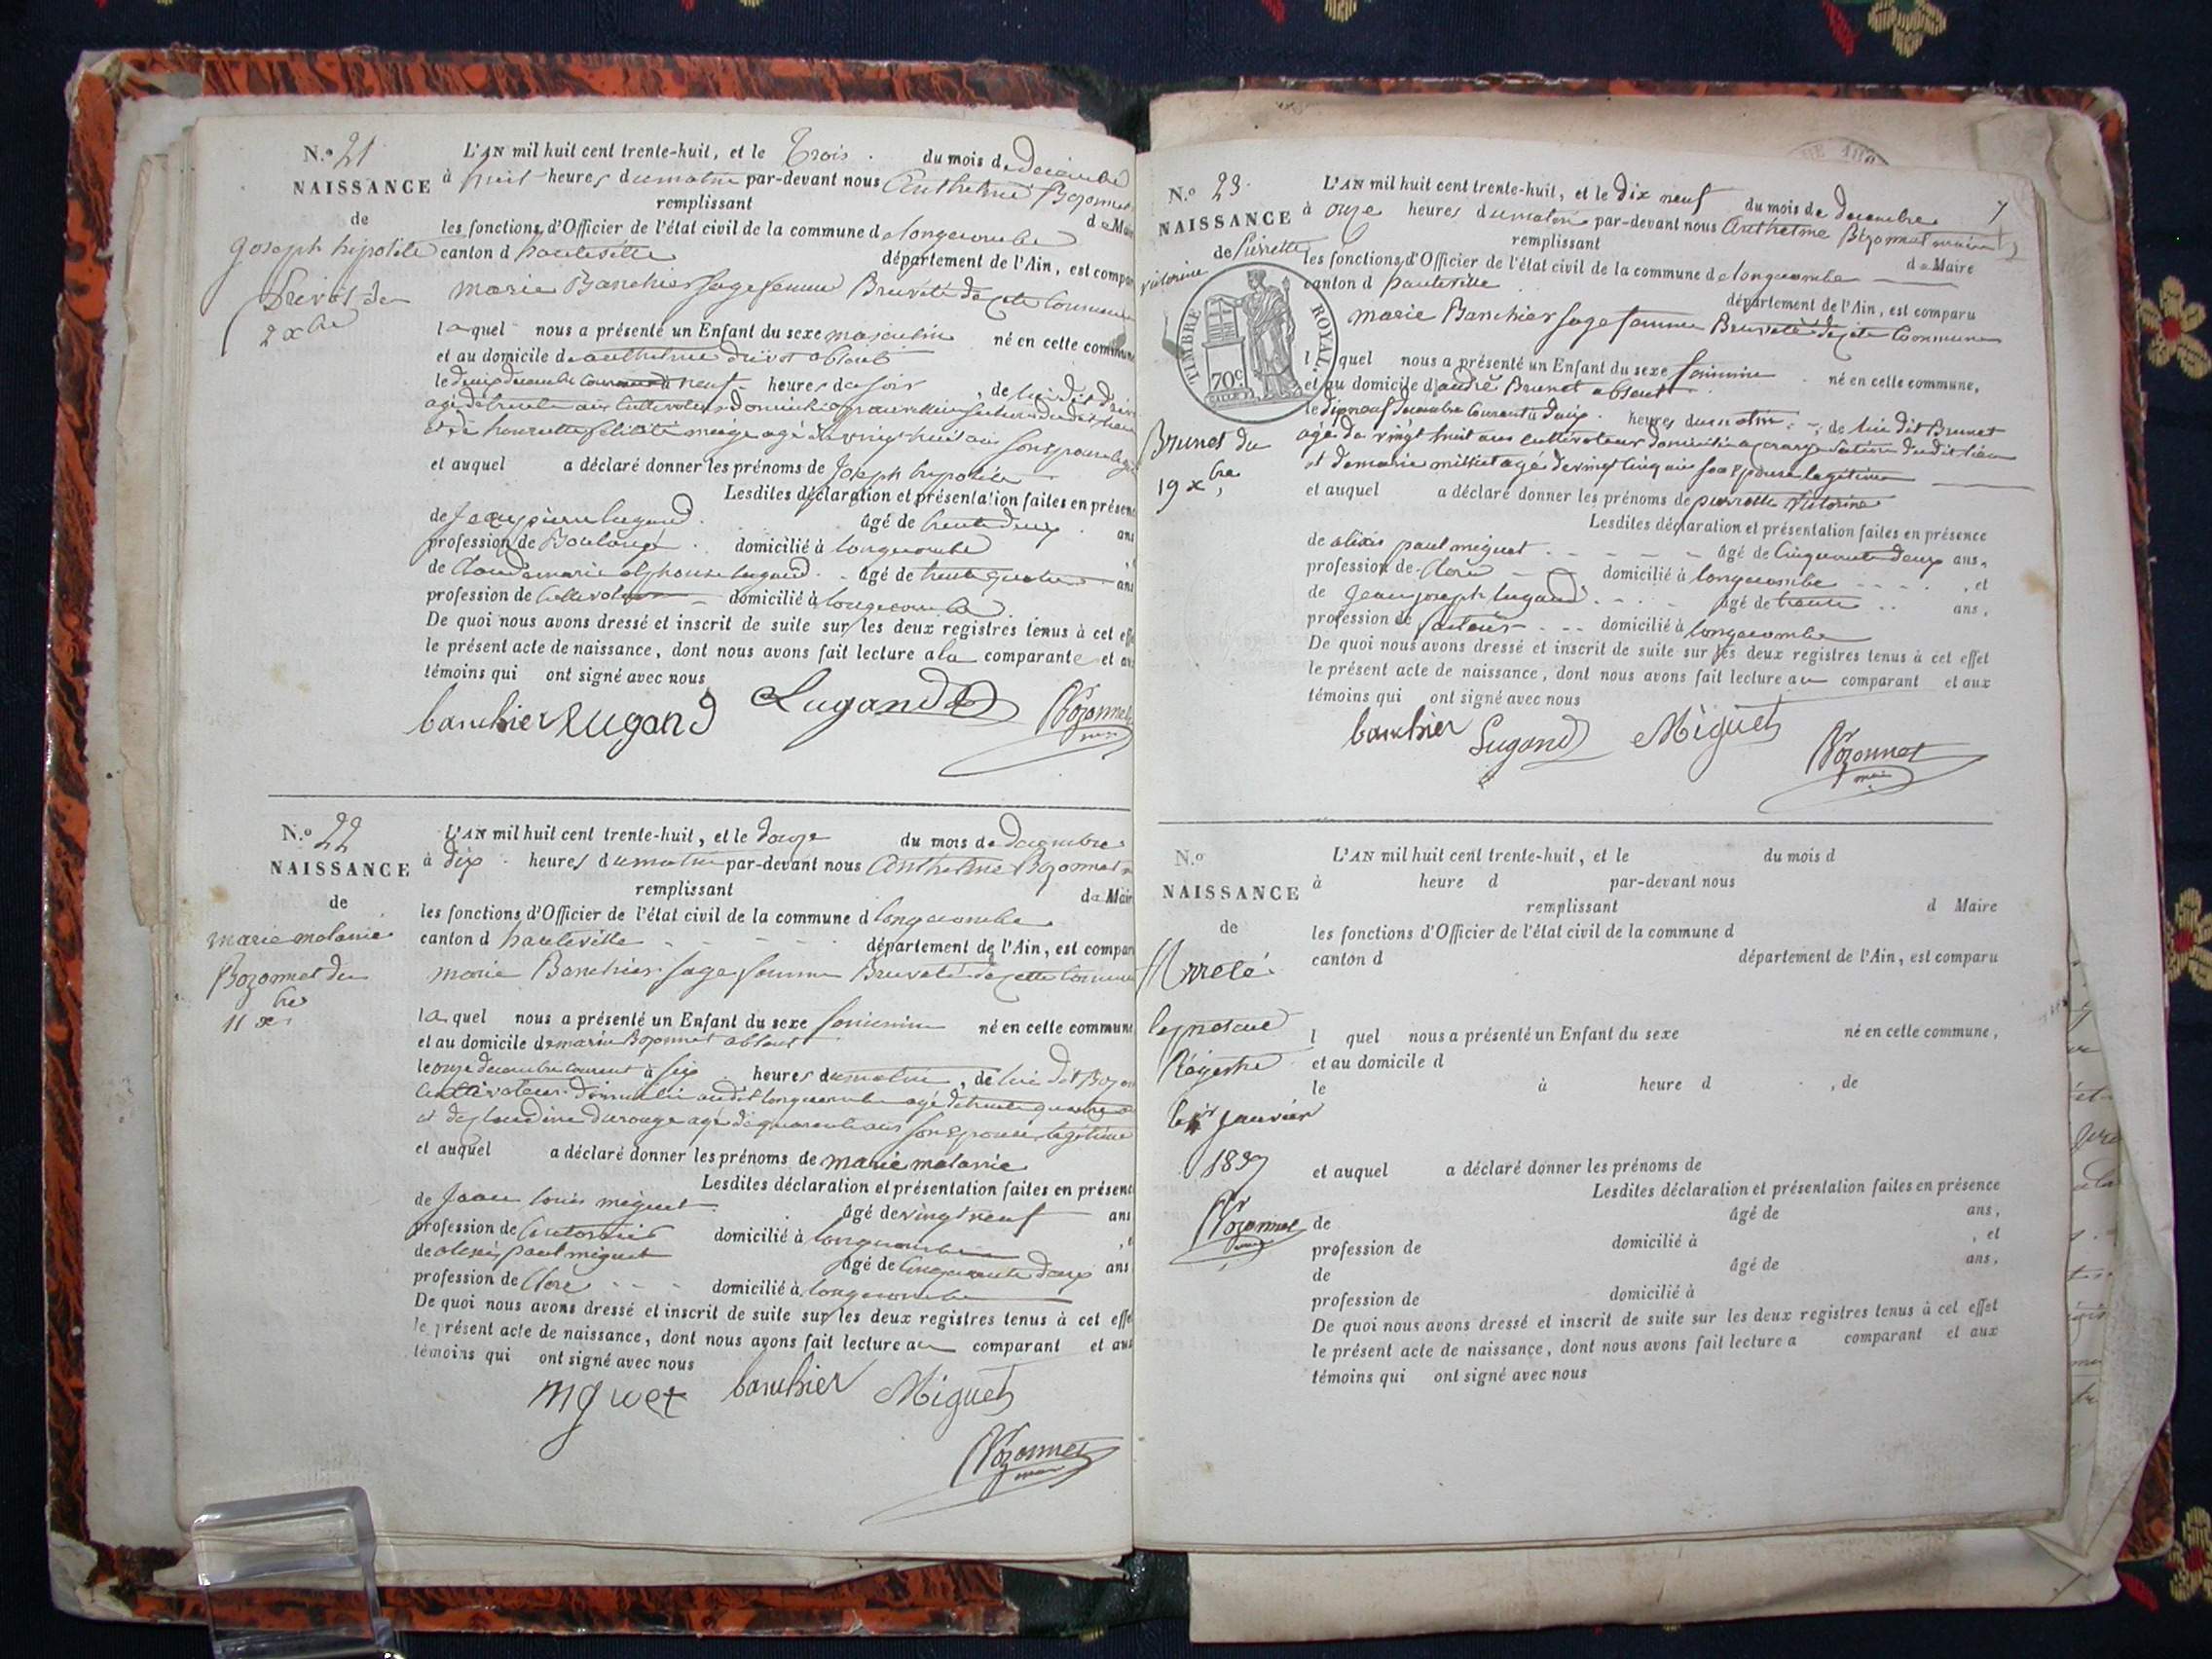 N.o 21
NAISSANCE
de
joseph hipolite
Drivet du
2 xbre
L'AN mil huit cent trente-huit, et le Trois du mois de Décembre
à huit heures du matin par-devant nous Anthelme Bozonnet
remplissant
les fonctions d'Officier de l'état civil de la commune de longecombe de Mair
canton d hauteville département de l'Ain, est compar
marie Banchier sage femme Brevetée de cette Commune
laquel nous a présenté un Enfant du sexe masculin né en cette commune
et au domicile de anthelme absent
le deux décembre courant à neuf heures du soir, de lui dit
agé de trente ans Cultivateur
agé de vingt huit ans son épouse
et auquel a déclaré donner les prénoms de Joseph hipolite
Lesdites déclaration et présentation faites en présen
de Jean pierre lugand âgé de trente deux ans
profession de Boulangé domicilié à longecombe
de Claude marie alphonse lugand âgé de trente quatre ans
profession de Cultivateur domicilié à longecombe
De quoi nous avons dressé et inscrit de suite sur les deux registres tenus à cet effe
le présent acte de naissance, dont nous avons fait lecture a la comparante et au
témoins qui ont signé avec nous
banchier lugand Lugand Bozonnet
N.o 22
NAISSANCE
de
marie melanie
Bozonnet du
11 xbre
L'AN mil huit cent trente-huit, et le douze du mois de Decembre
à dix heures du matin par-devant nous Anthelme Bozonnet
remplissant de Mair
les fonctions d'Officier de l'état civil de la commune d longecombe
canton d hauteville département de l'Ain, est compar
marie Banchier sage femme Brevetée de cette Commune
laquel nous a présenté un Enfant du sexe feminin né en cette commune
et au domicile de marin Bozonnet absent
le onze decembre courant à six heures du matin, de lui dit Bozon
cultivateur domicilié audit longecombe agé de trente quatre
et de claudine durouge agé de quarante ans son epouse legitime
et auquel a déclaré donner les prénoms de marie melanie
Lesdites déclaration et présentation faites en présenc
de Jean louis miguet âgé de vingt neuf ans
profession de domicilié à longecombe
de alexis paul miguet âgé de Cinquante deux ans
profession de Clerc domicilié à longecombe
De quoi nous avons dressé et inscrit de suite sur les deux registres tenus à cet effe
le présent acte de naissance, dont nous avons fait lecture au comparant et aux
témoins qui ont signé avec nous
miguet banchier Miguet
Bozonnet
maire
N.o 23
NAISSANCE
de Pierrette
victorine
TIMBRE ROYAL
70c
Brunet du
19 xbre
L'AN mil huit cent trente-huit, et le dix neuf du mois de decembre 7
à onze heures du matin par-devant nous Anthelme Bozonnet maire
remplissant
les fonctions d'Officier de l'état civil de la commune de longecombe de Maire
canton d hauteville département de l'Ain, est comparu
marie Banchier sage femme Brevetée de cette Commune
l quel nous a présenté un Enfant du sexe feminin né en cette commune,
et au domicile d andré Brunet absent
le dix neuf decembre Courant à deux heures du matin, de lui dit Brunet
agé de vingt huit ans cultivateur domicilié dudit lieu
et de marie milliet agé de vingt cinq ans son epouse legitime
et auquel a déclaré donner les prénoms de pierrette victorine
Lesdites déclaration et présentation faites en présence
de alexis paul miguet âgé de Cinquante deux ans,
profession de Clerc domicilié à longecombe, et
de Jean joseph lugand âgé de trente ans,
profession de domicilié à longecombe
De quoi nous avons dressé et inscrit de suite sur les deux registres tenus à cet effet
le présent acte de naissance, dont nous avons fait lecture au comparant et aux
témoins qui ont signé avec nous
banchier Lugand Miguet
Bozonnet
maire
N.o
NAISSANCE
de
Arreté
le present
Régistre
le 1er janvier
1839
Bozonnet
L'AN mil huit cent trente-huit, et le du mois d
à heure d par-devant nous
remplissant d Maire
les fonctions d'Officier de l'état civil de la commune d
canton d département de l'Ain, est comparu
l quel nous a présenté un Enfant du sexe né en cette commune,
et au domicile d
le à heure d , de
et auquel a déclaré donner les prénoms de
Lesdites déclaration et présentation faites en présence
de âgé de ans,
profession de domicilié à , et
de âgé de ans,
profession de domicilié à
De quoi nous avons dressé et inscrit de suite sur les deux registres tenus à cet effet
le présent acte de naissance, dont nous avons fait lecture a comparant et aux
témoins qui ont signé avec nous